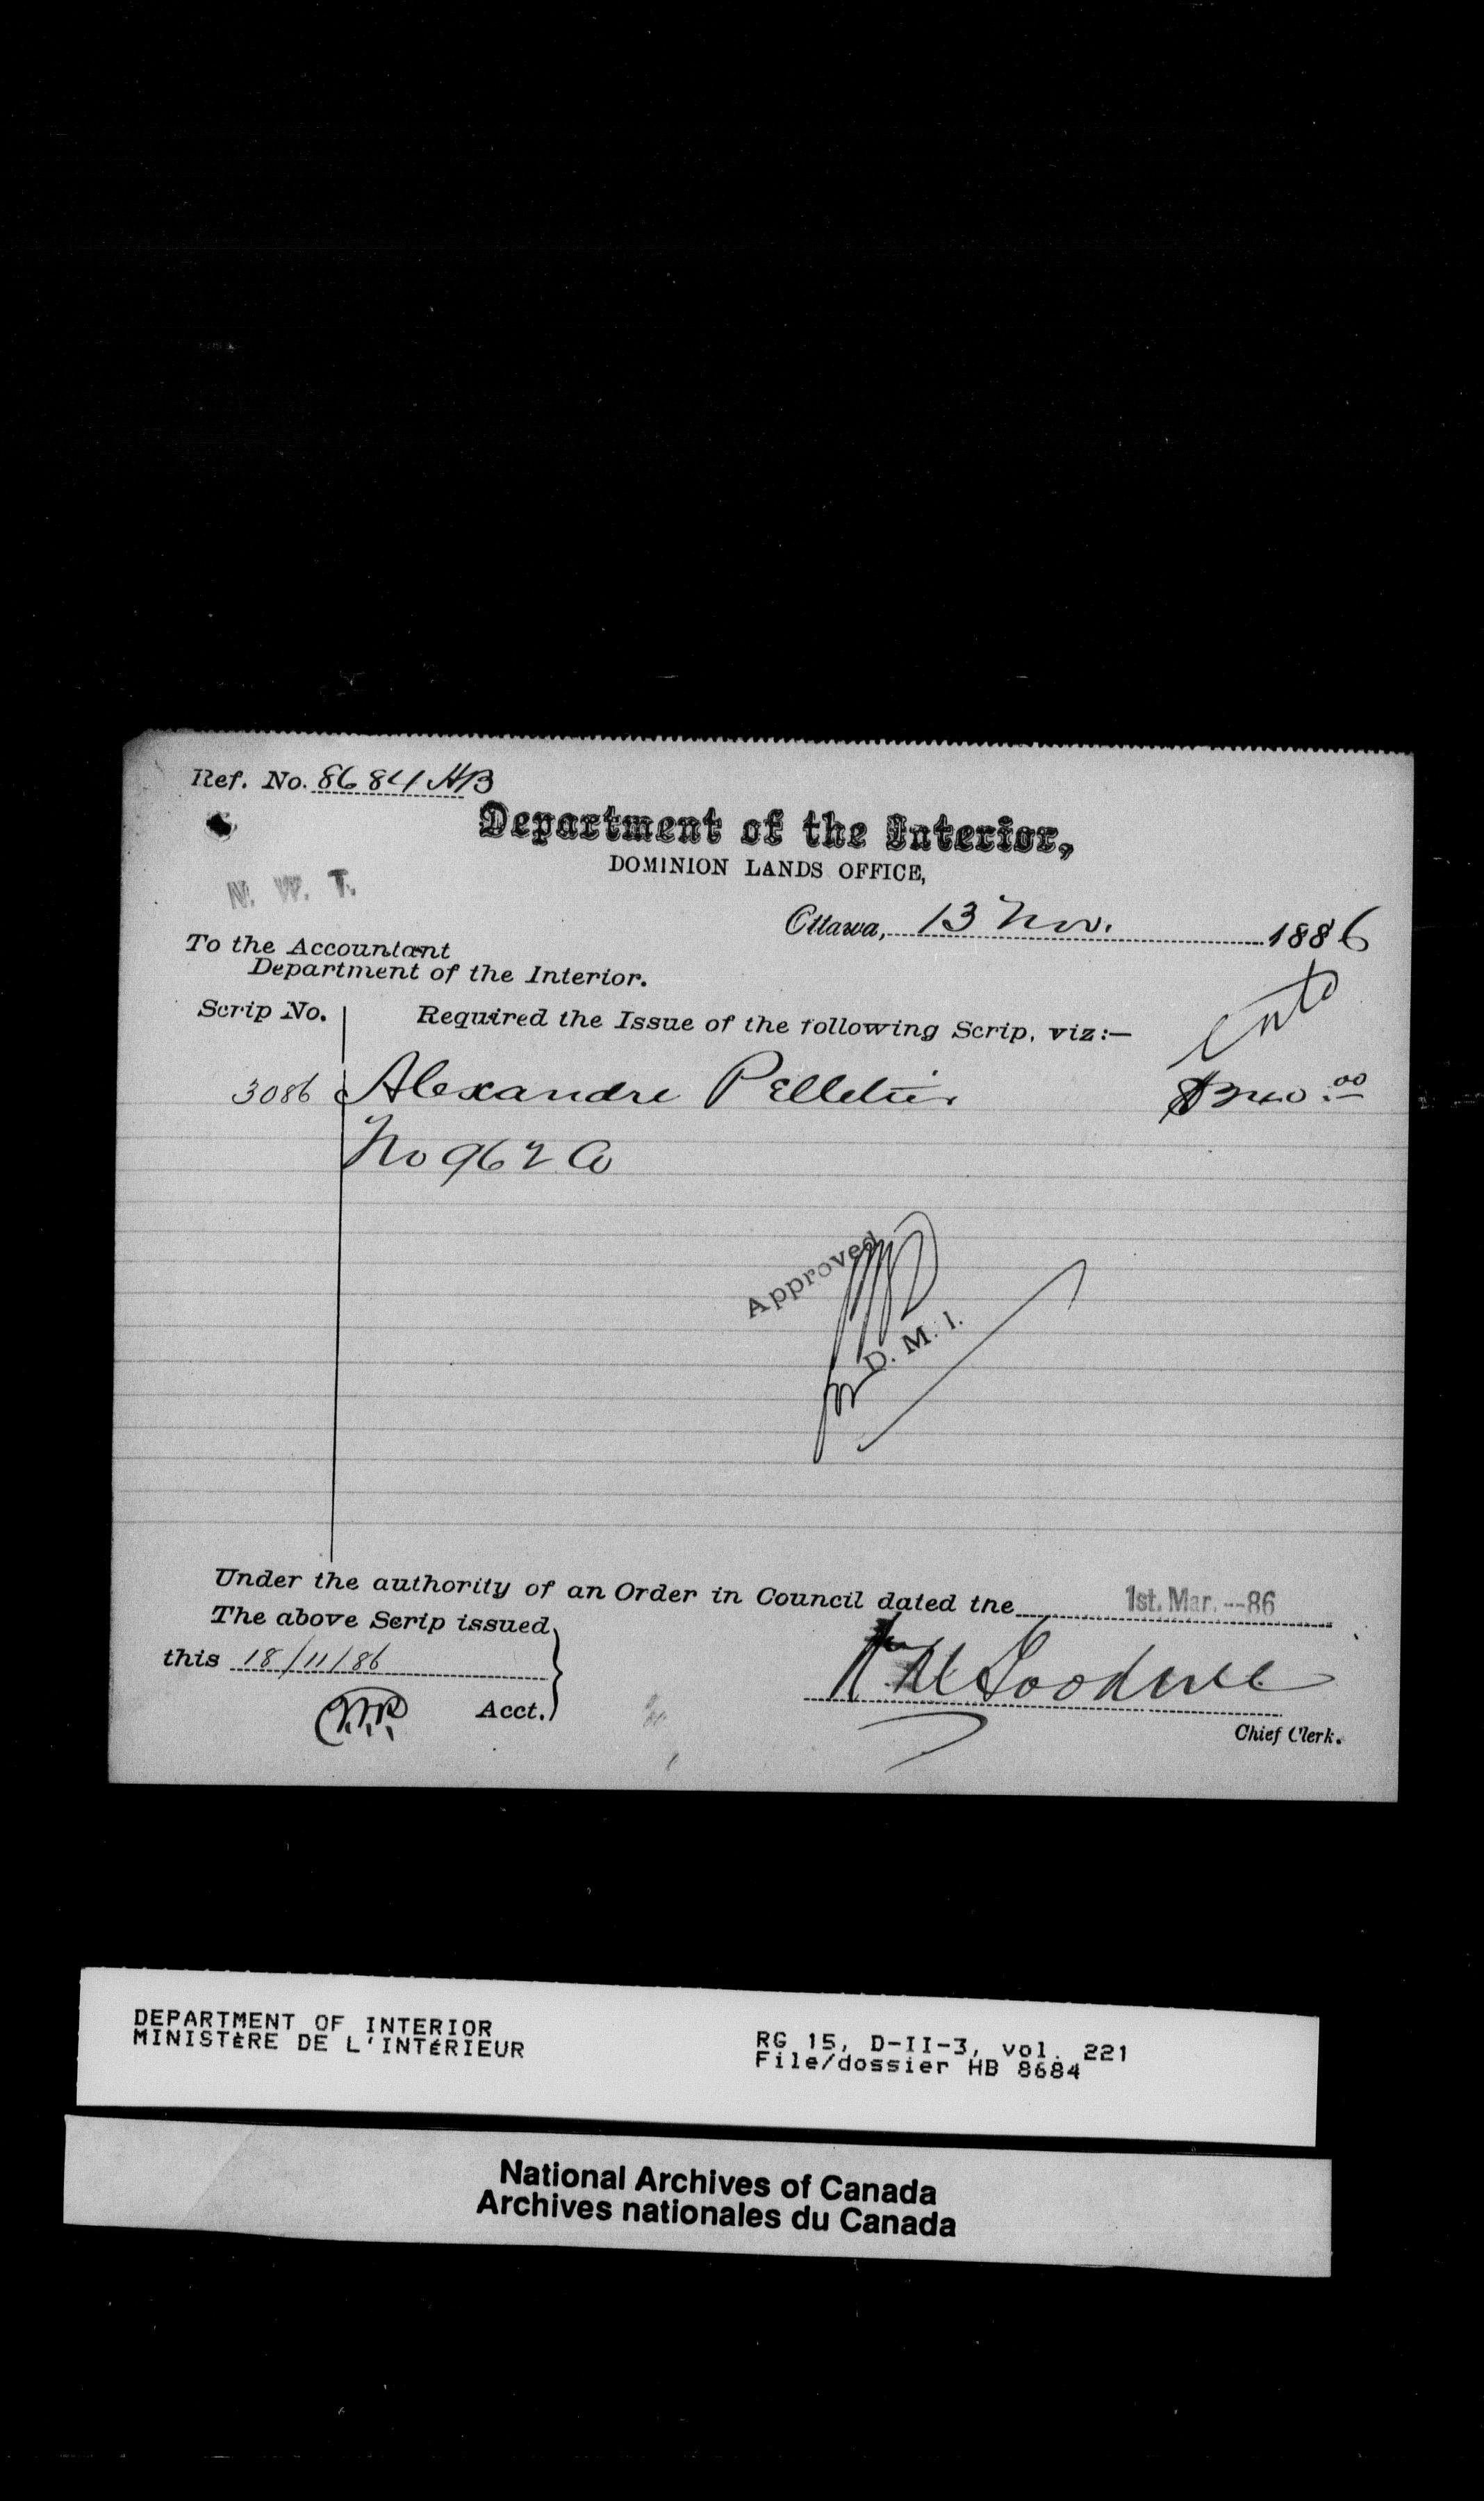 Ref. No. 8684 HB
Department of the Interior,
DOMINION LANDS OFFICE,
N. W. T.
Ottawa, 13 Nov. 1886
To the Accountant
Department of the Interior.
Scrip No. Required the Issue of the following Scrip, viz:—
3086 Alexandre Pelletier $240.00
No 962
Approved
D. M. I.
Under the authority of an Order in Council dated the 1st. Mar. --86
The above Scrip issued
this 18/11/86
Acct.
Chief Clerk.
DEPARTMENT OF INTERIOR
MINISTÈRE DE L'INTÉRIEUR
RG 15, D-II-3, vol. 221
File/dossier HB 8684
National Archives of Canada
Archives nationales du Canada